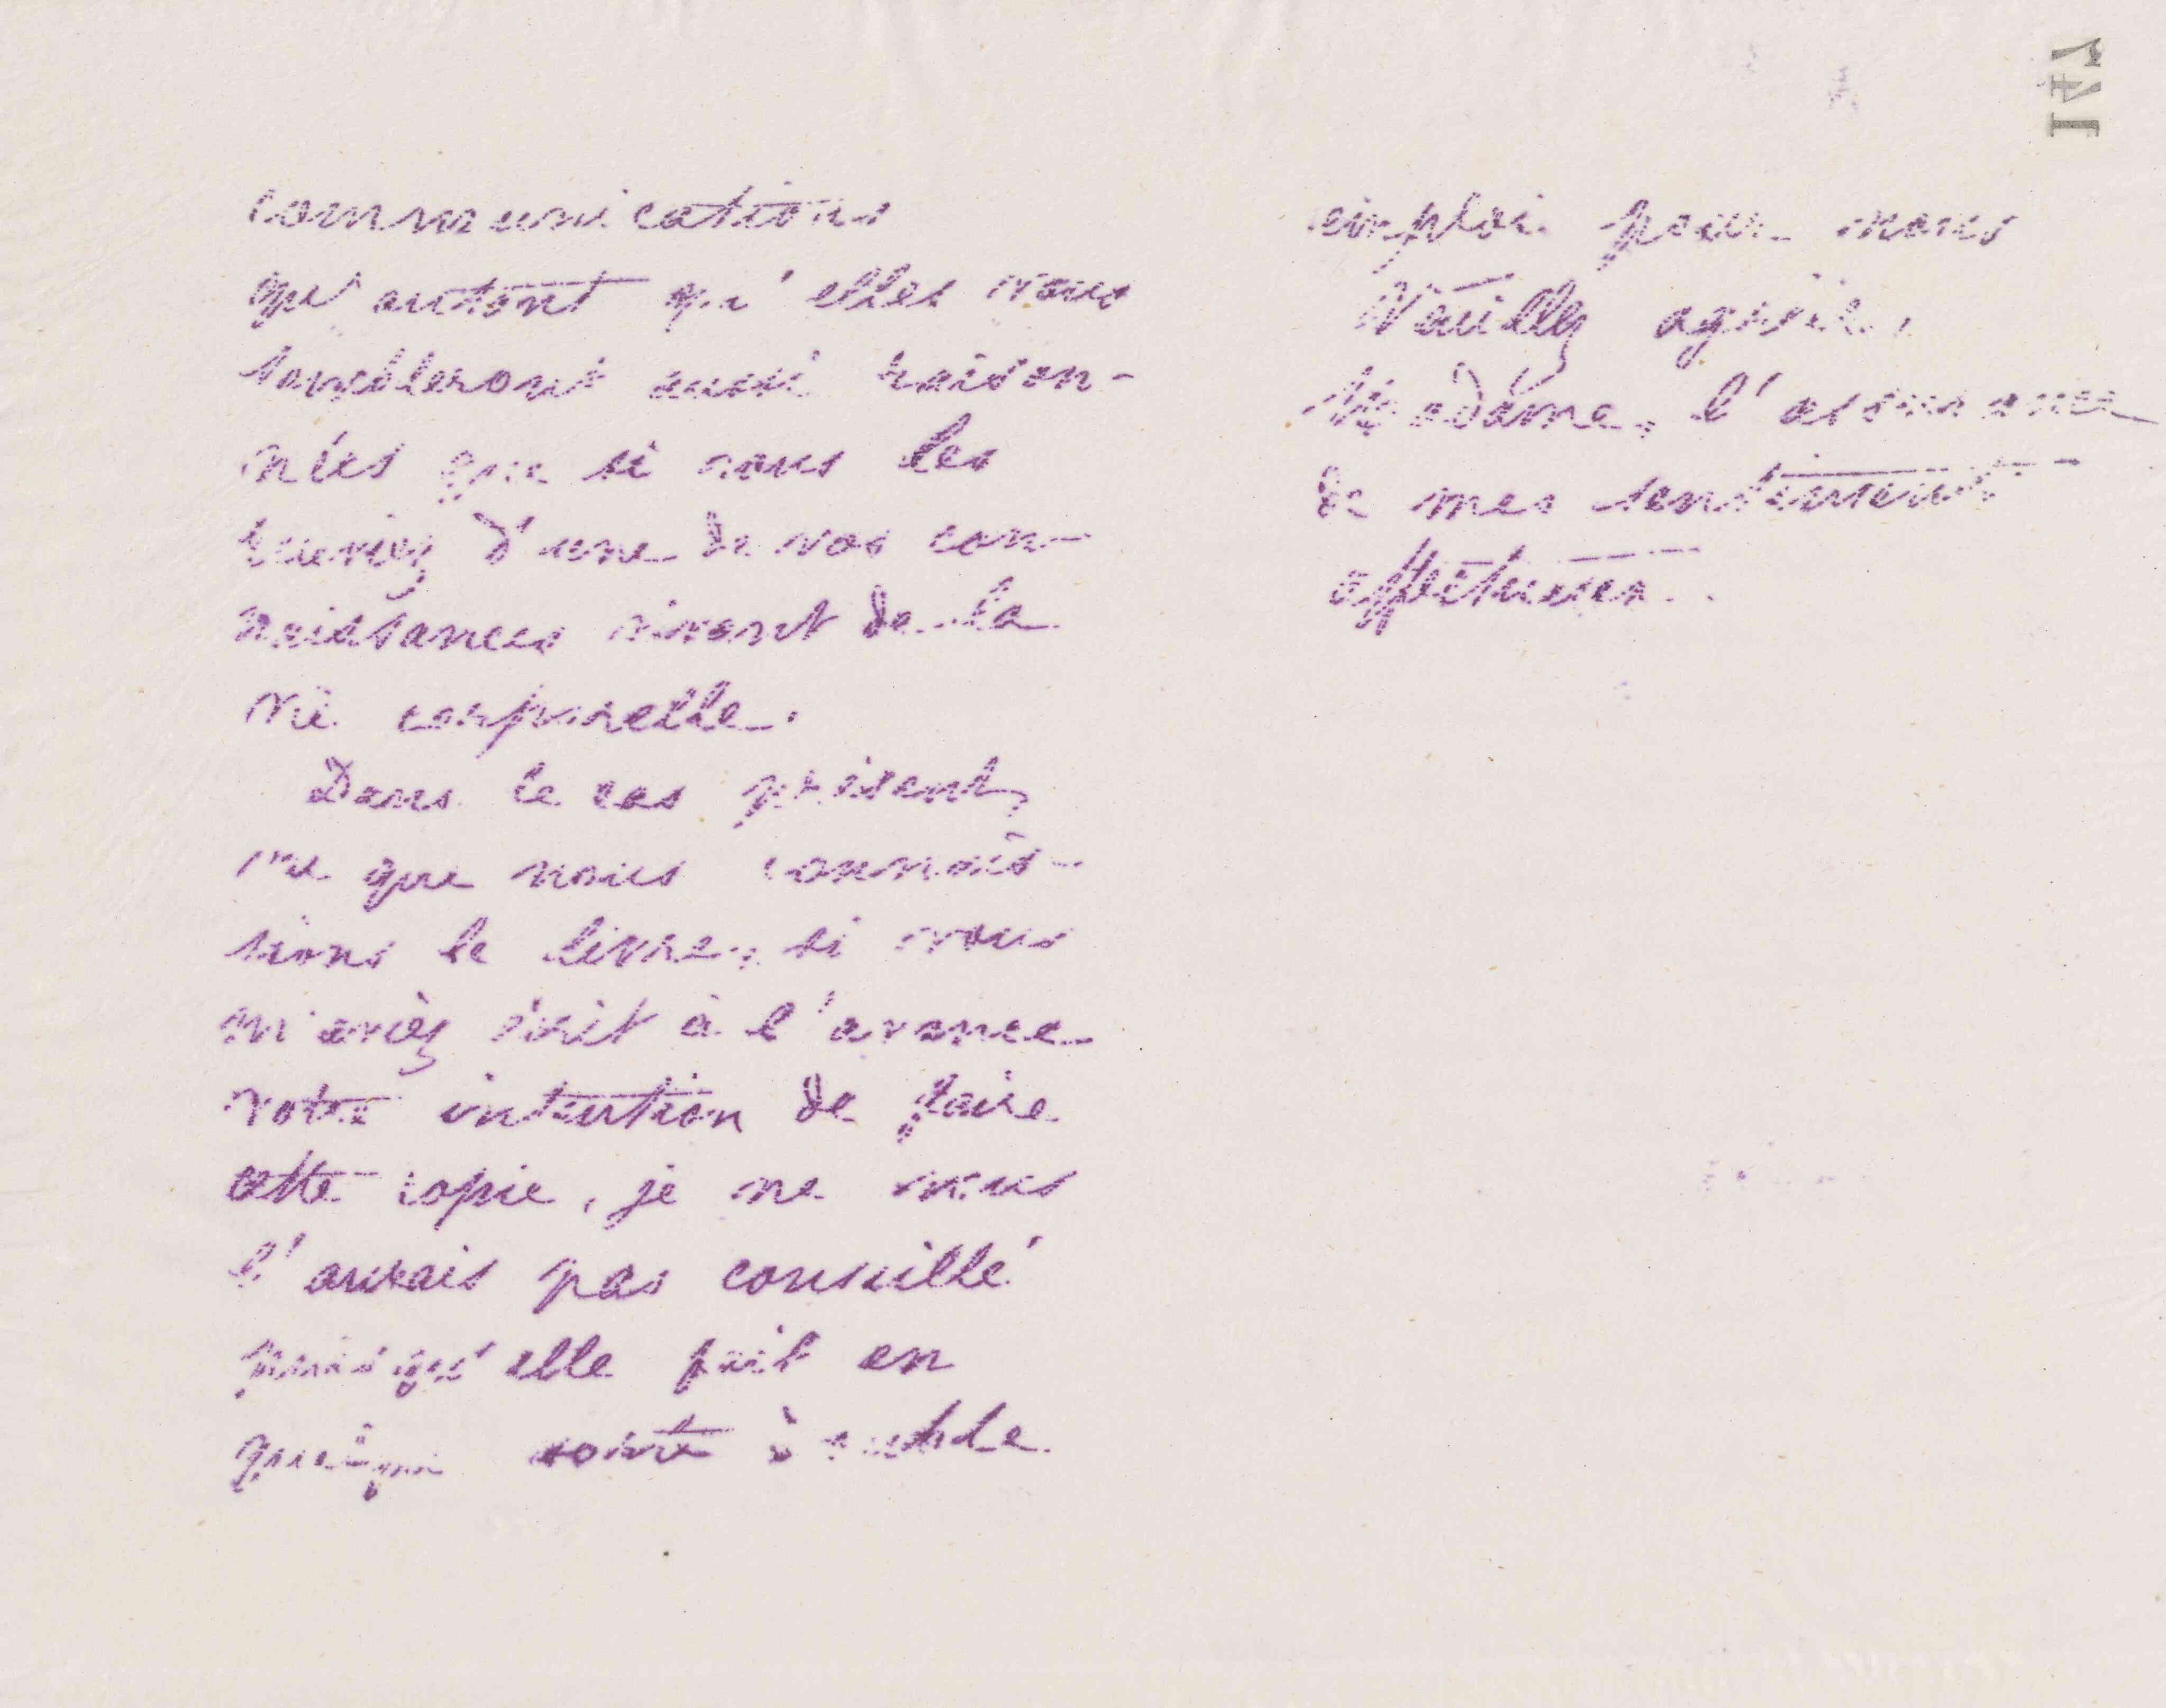 communications
qu'autant qu'elles vous
sembleront aussi raison-
nées que si vous les
teniez d'une de vos con-
naissances vivant de la
vie corporelle.
Dans le cas présent,
vu que nous connais-
sions le livre, si vous
m'aviez écrit à l'avance
votre intention de faire
cette copie, je ne vous
l'aurais pas conseillé
puisqu'elle fait en
quelque sorte double
emploi pour nous
Veuillez agréer,
Madame, l'assurance
de mes sentiments
affectueux.
141